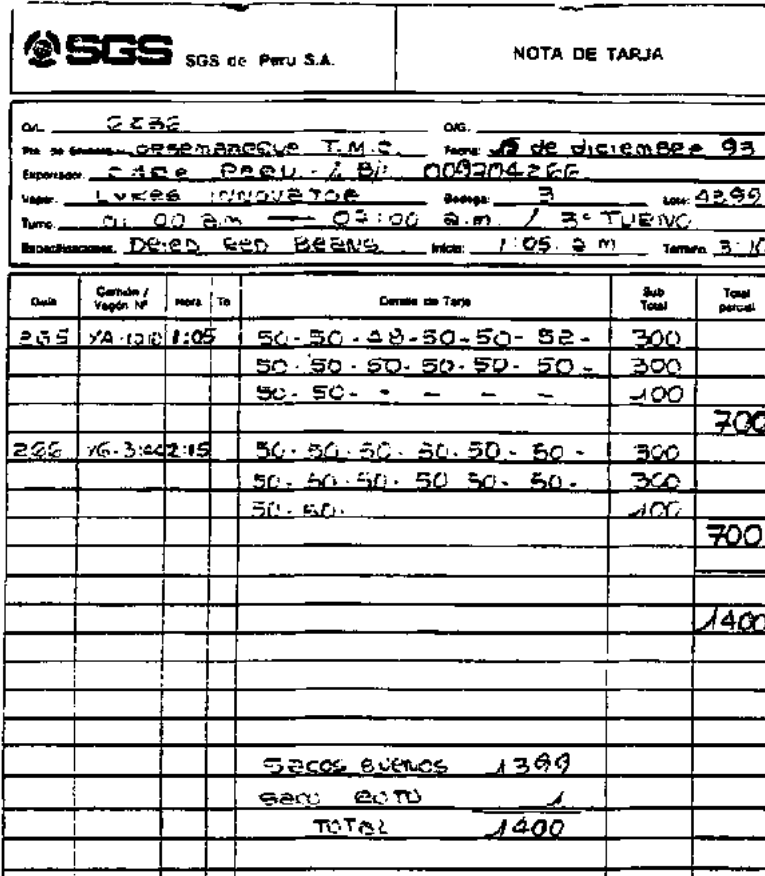 SGS SGS de Peru S.A. NOTA DE TARJA
O/L. O/G.
Pto. de Embarque T.M.C. Fecha: 15 de diciembre 93
Exportador. CARE PERU - / B/: 009204266
Vapor. LYKES INNOVATOR Bodega: 3 Lote: 4399
Turno. 01:00 a.m — 03:00 a.m. / 3º TURNO
Especificaciones. DRIED RED BEANS Inicio: 1:05. a m Termino. 3:10
Guía Camión / Vagón Nº Hora To Detalle de Tarja Sub Total Total parcial
265 YA- 1:05 50-50-48-50-50-52- 300
50-50-50-50-50-50- 300
50-50- - - - - 100
700
266 YG-3 2:15 50-50-50-50-50-50- 300
50-50-50-50 50-50- 300
50-50- 100
700
1400
SACOS BUENOS 1399
SACO ROTO 1
TOTAL 1400